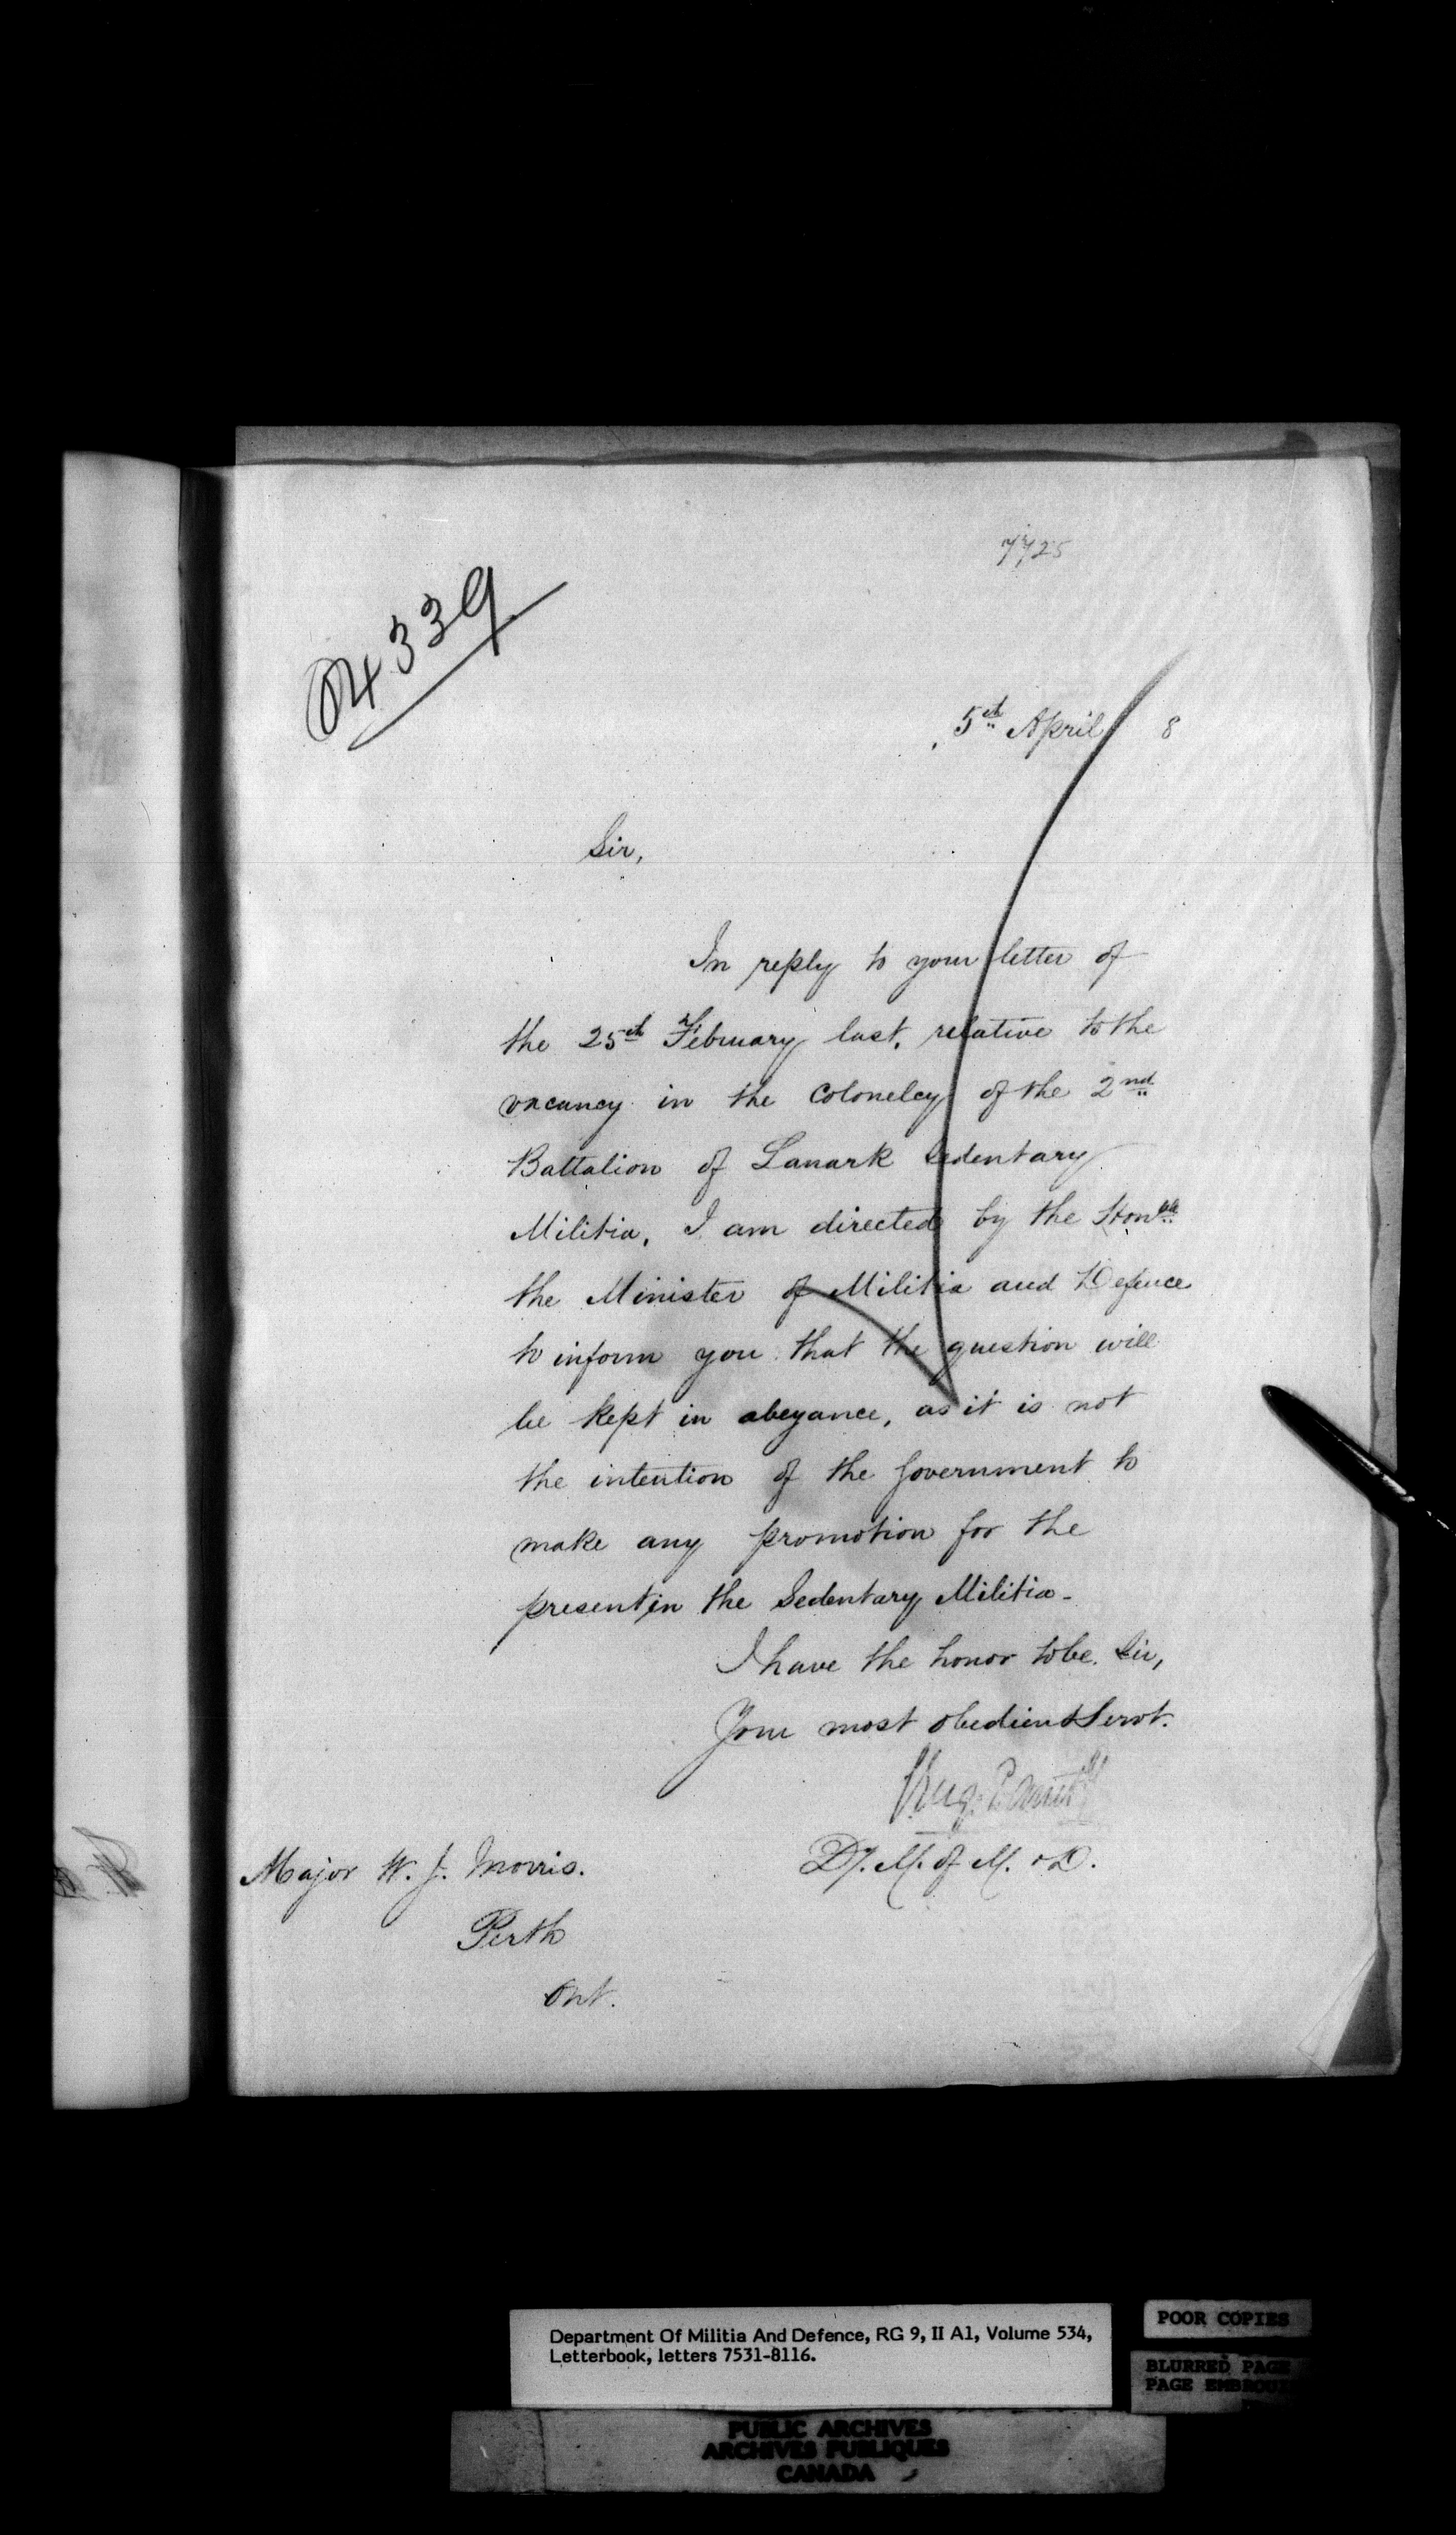 7725
04339
5th April 8
Sir,
In reply to your letter of
the 25th February last, relative to the
vacancy in the Colonelcy of the 2nd
Battalion of Lanark Sedentary
Militia, I am directed by the Honble
the Minister of Militia and Defence
to inform you that the question will
be kept in abeyance, as it is not
the intention of the Government to
make any promotion for the
present in the Sedentary Militia.
I have the honor to be, Sir,
Your most obedient Servt.
Dy. M. of M. & D.
Major W. J. Morris.
Perth
Ont.
Department Of Militia And Defence, RG 9, II A1, Volume 534,
Letterbook, letters 7531-8116.
POOR COPIES
BLURRED PAGE
PAGE
PUBLIC ARCHIVES
ARCHIVES PUBLIQUES
CANADA